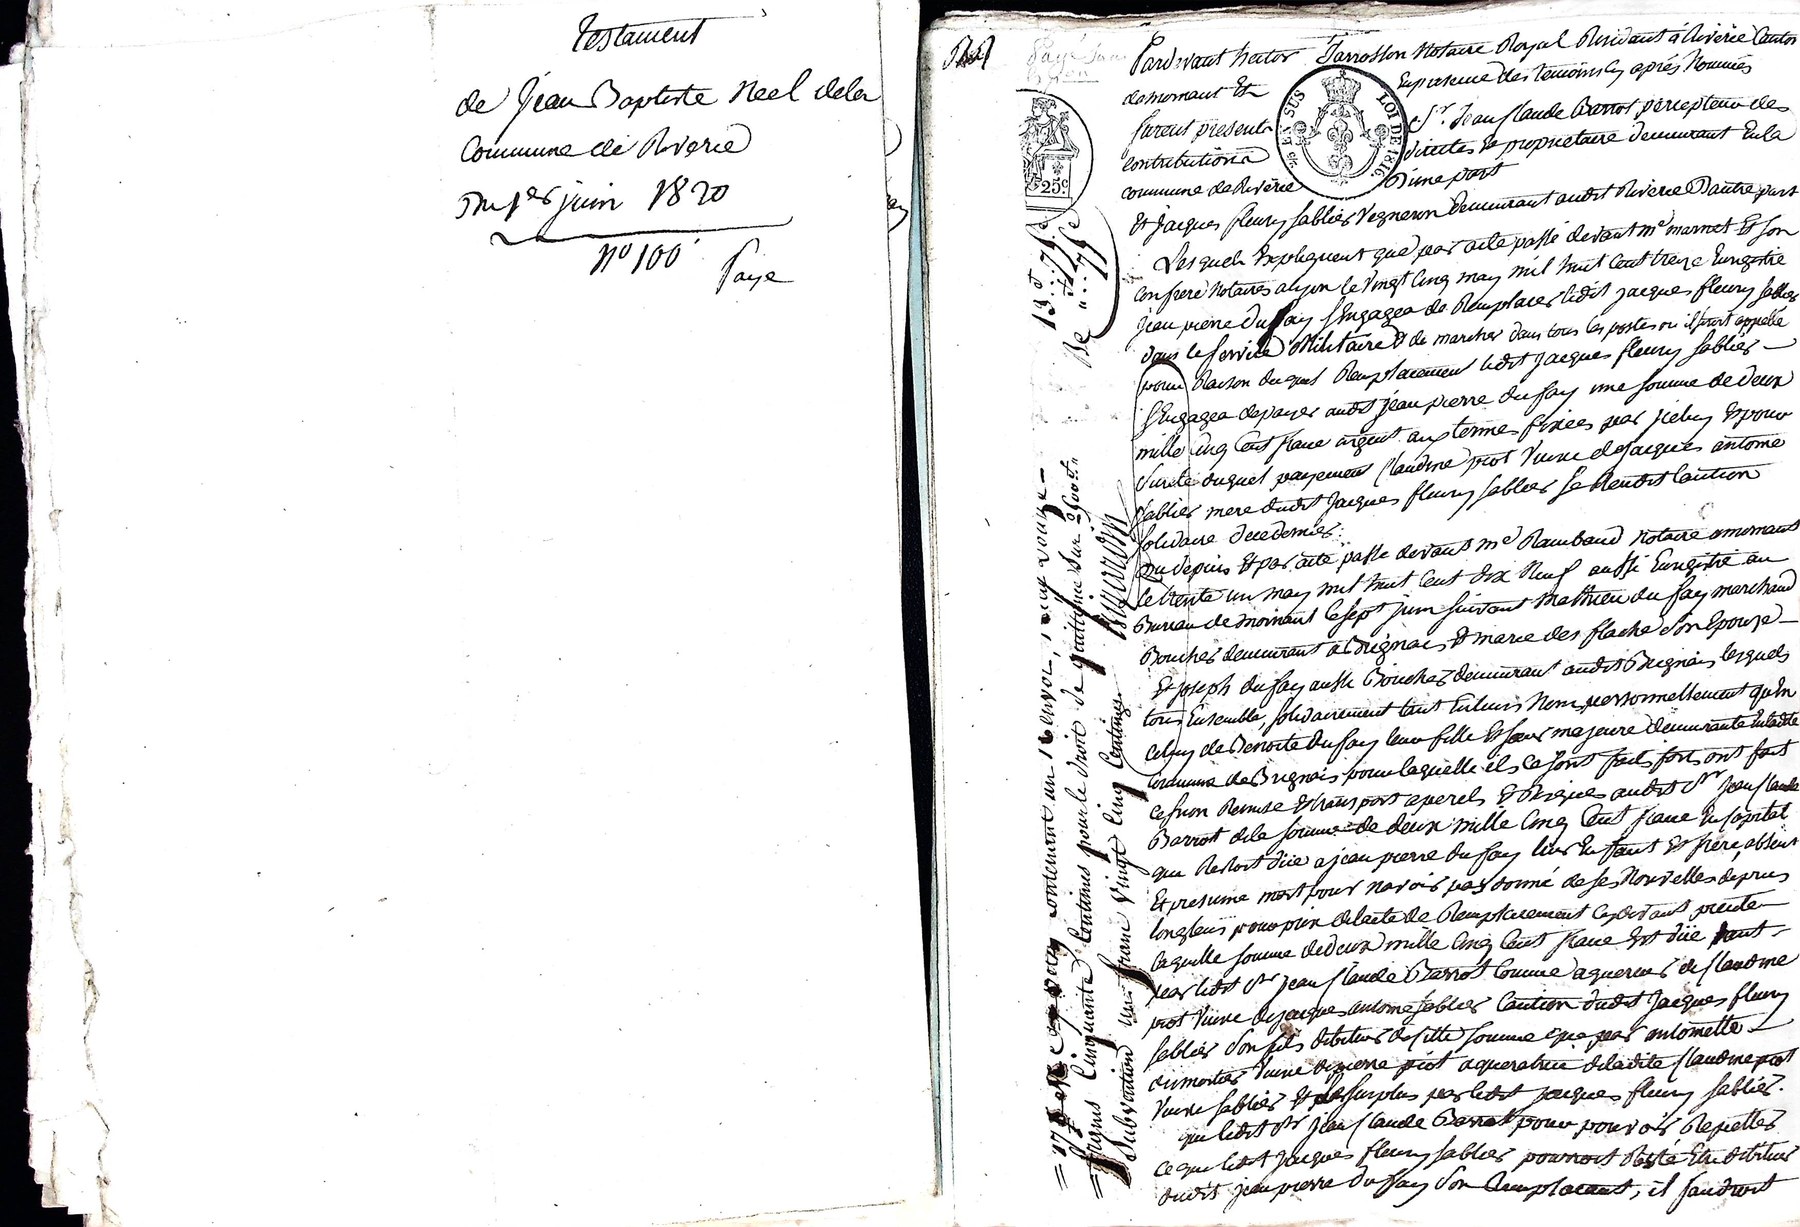 Testament
de Jean Baptiste Neel de la
Commune de Riverie
Du 1er juin 1820
No 100
Paye
Pardevant hector Tarrosson Notaire Royal Residant à Riverie Canton
de mornant Et En presence des temoins cy après Nommés
furent presents Sr. Jean Claude Barrot percepteur des
contributions directes Et proprietaire demeurant En la
commune de Riverie D'une part
5% EN SUS
LOI DE 1816
25c.
Et Jacques fleury Sablier Vigneron demeurant audit Riverie D'autre part
Lesquels Expliquent que par acte passé devant me marmet Et son
Confrere Notaires a lyon le Vingt Cinq may mil huit Cent treze Enregistré
Jean pierre Dufay S'Engagea de Remplacer ledit Jacques fleury Sablier
dans le Service Militaire & de marcher dans tous les postes ou il seroit appellé
pour Raison duquel Remplacement ledit Jacques fleury Sablier
S'Engagea de payer audit Jean pierre Dufay une somme de deux
mille Cinq Cent franc argent aux termes fixées par icelui Et pour
Sureté duquel payement Claudine piot Veuve de Jacques antoine
Sablier mere dudit Jacques fleury Sablier Se Rendit Caution
Solidaire de ce dernier.
Que depuis Et par acte passé devant me Rambaud Notaire a mornant
le trente un may mil huit Cent dix Neuf aussi Enregistré au
Bureau de mornant le Sept juin Suivant Mathieu Dufay marchand
Boucher demeurant a Brignais & marie des flache Son Epouse
Et Joseph Dufay aussi Boucher demeurant audit Brignais lesquels
tous Ensemble, solidairement tant En leurs Noms personnellement qu'En
Celui de Benoite Dufay leur fille Et soeur majeure demeurante En ladite
Commune de Brignais pour laquelle ils se sont faits forts ont fait
Cession Remise Et transport a perils Et Risques audit Sr Jean Claude
Barrot de la somme de deux mille Cinq Cent franc En Capital
que Restoit düe a jean pierre Dufay leur Enfant Et frere, absent
Et presumé mort pour n'avoir pas donné de ses Nouvelles depuis
longtems pour prix de l'acte de Remplacement cy devant
laquelle somme de deux mille Cinq Cent franc Est düe tant
par ledit Sr Jean Claude Barrot Comme aquereur de Claudine
piot Veuve de Jacques antoine Sablier Caution dudit Jacques fleury
Sablier Son fils debiteur de cette somme que par antoinette
dumortier Veuve de pierre piot aqueratrice de ladite Claudine piot
Veuve Sablier Et Surplus par ledit Jacques fleury Sablier.
que ledit Sr Jean Claude Barrot pour pouvoir Repetter
Ce que ledit Jacques fleury Sablier pourroit Resté Etre debiteur
dudit Jean pierre Dufay Son Remplacant, il faudroit
francs Cinquante Centimes pour le droit de quittance sur 2500f.
Subvention un franc Vingt Cinq Centimes